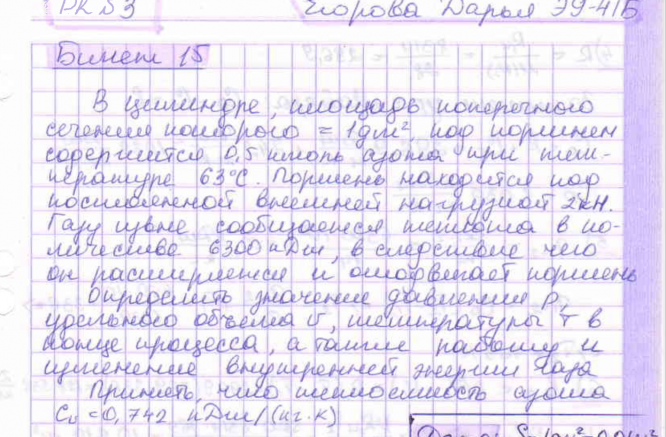 РК №3 Егорова Дарья Э9-41Б
Билет 15
В цилиндре, площадь поперечного
сечения которого = 1дм², под поршнем
содержится 0,5 кмоль азота при тем-
пературе 63°С. Поршень находится под
постоянной внешней нагрузкой 2кН.
Газу извне сообщается теплота в ко-
личестве 6300 кДж, в следствие чего
он расширяется и отодвигает поршень
Определить значение давления p,
удельного объема υ, температуры T в
конце процесса, а также работу и
изменение внутренней энергии газа
Принять, что теплоемкость азота
Cv = 0,742 кДж/(кг·К)